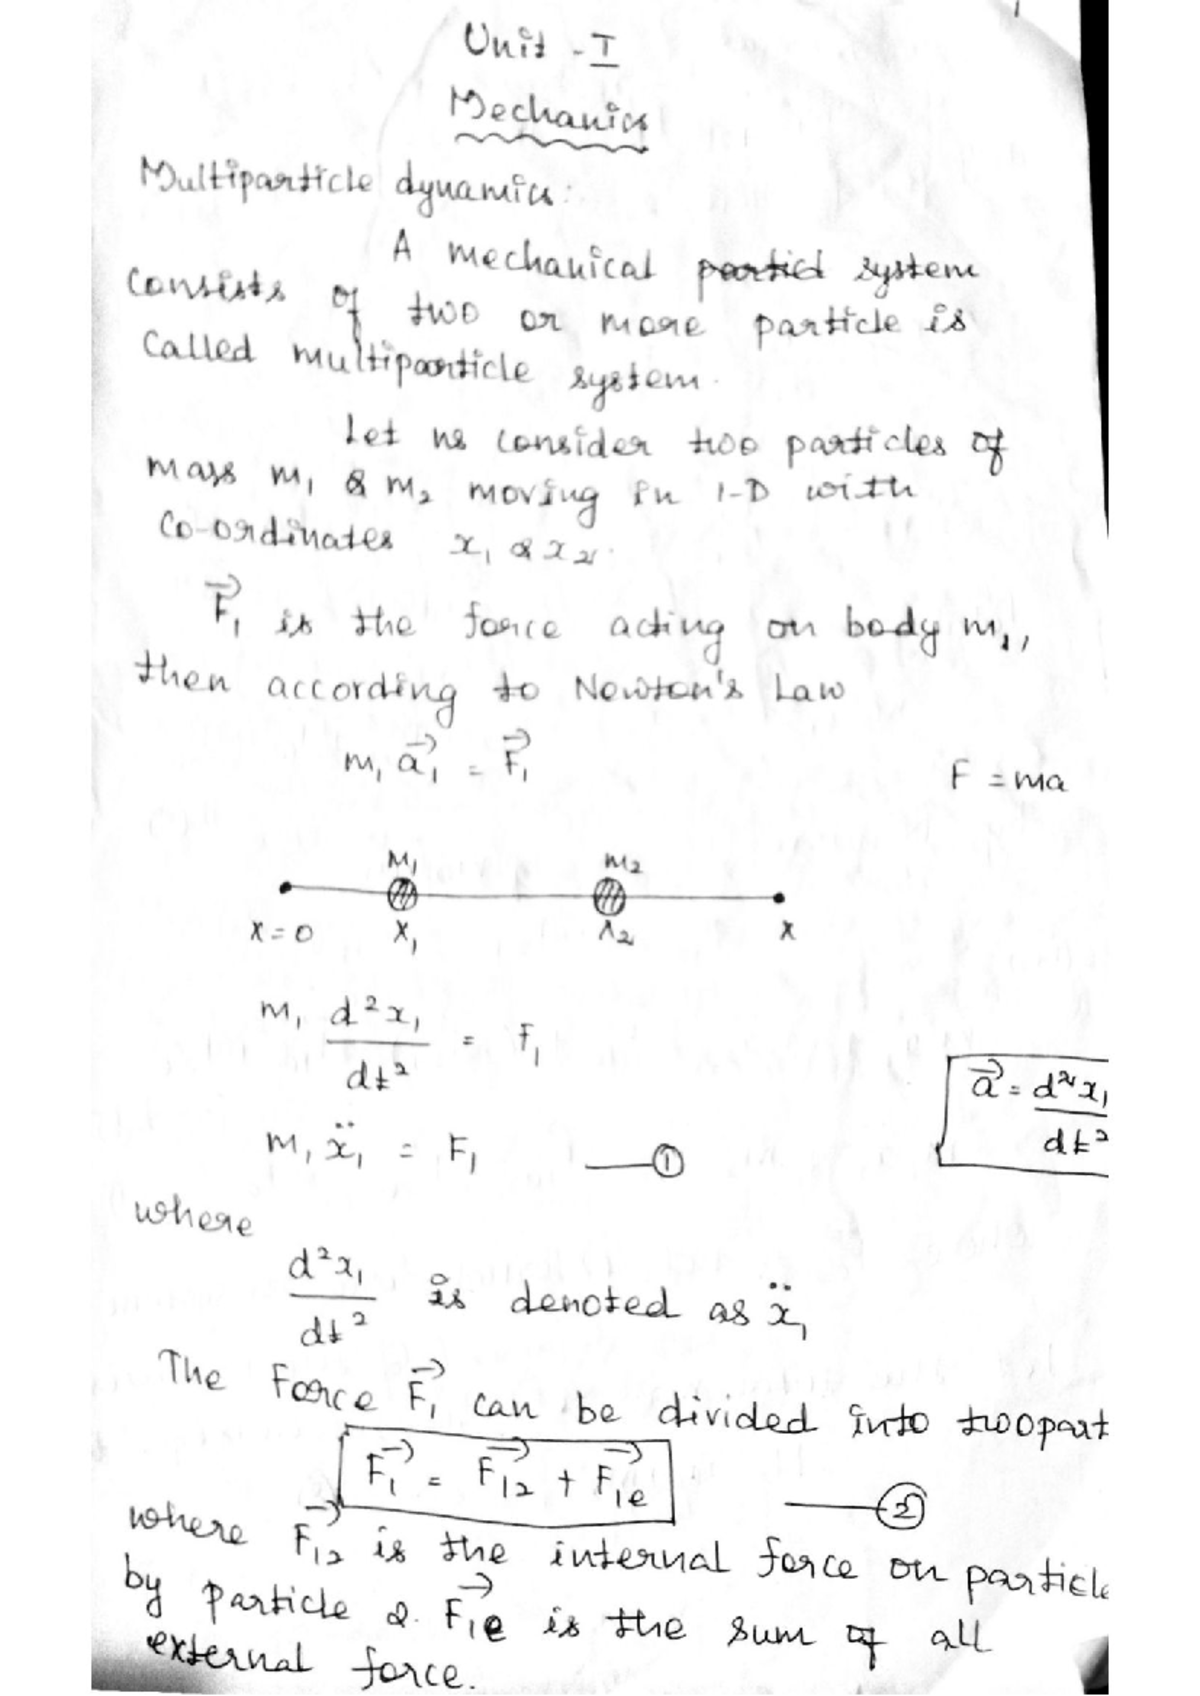 Unit - I
Mechanics
Multiparticle dynamics:
A mechanical system
Consists of two or more particle is
Called multiparticle system.
Let us consider two particles of
mass m₁ & m₂ moving in 1-D with
Co-ordinates x₁ & x₂.
F⃗₁ is the force acting on body m₁,
then according to Newton's Law
m₁ a⃗₁ = F⃗₁
F = ma
M₁ m₂
X=0 X₁ X₂ X
m₁ d²x₁/dt² = F₁
a⃗ = d²x₁/dt²
m₁ ẍ₁ = F₁ —①
where
d²x₁/dt² is denoted as ẍ₁
The Force F⃗₁ can be divided into two part
F⃗₁ = F⃗₁₂ + F⃗₁e —②
where F⃗₁₂ is the internal force on particle
by particle 2. F⃗₁e is the sum of all
external force.